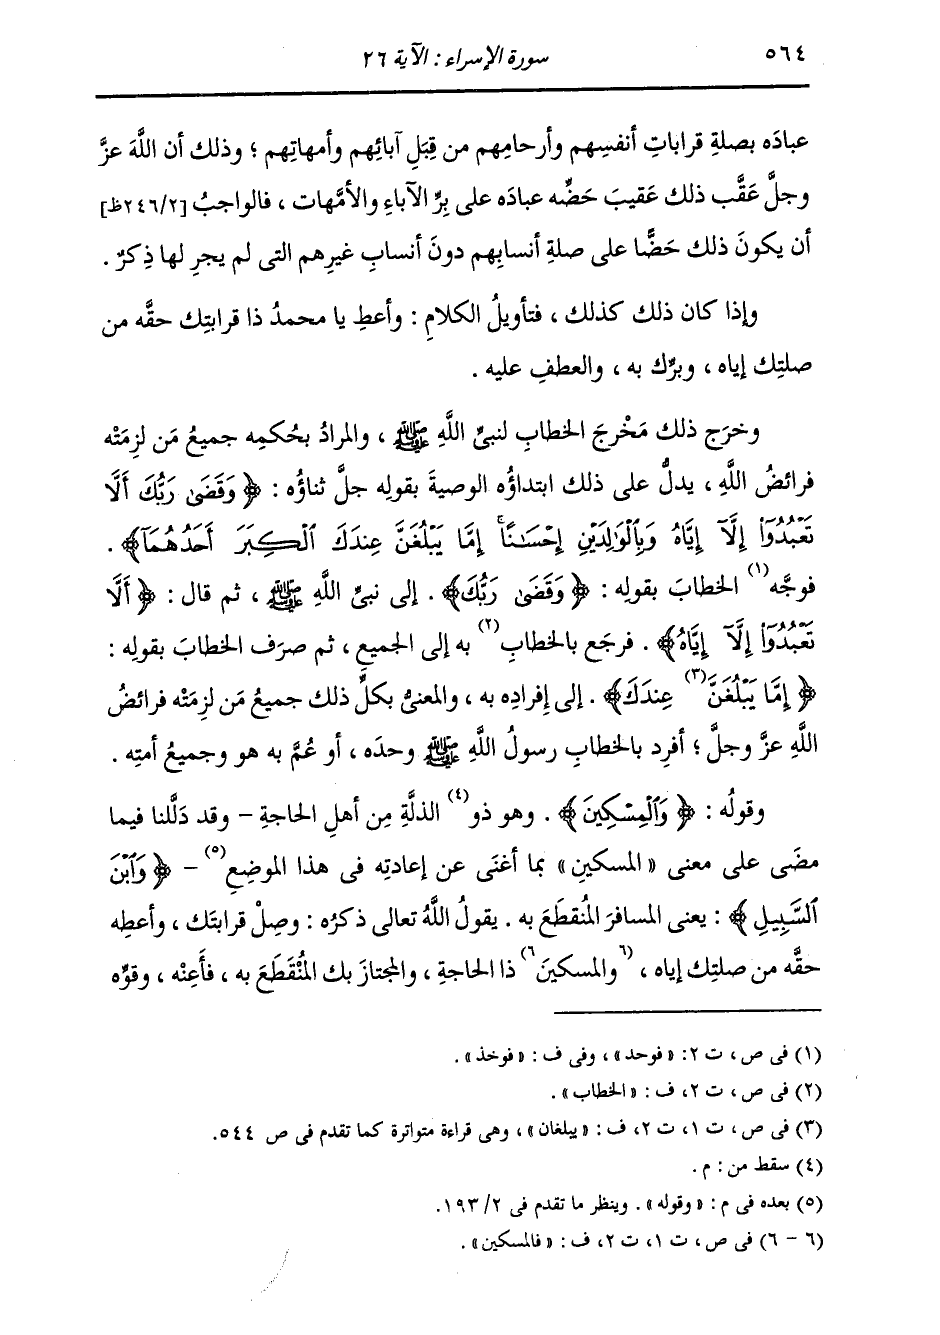 ٥٦٤
سورة الإسراء : الآية ٢٦
عبادَه بصلةِ قراباتِ أنفسِهم وأرحامِهم من قِبَلِ آبائِهم وأمهاتِهم ؛ وذلك أن اللَّهَ عزَّ
وجلَّ عَقَّب ذلك عَقيبَ حَضِّه عبادَه على بِرِّ الآباءِ والأمَّهات ، فالواجبُ [٢٤٦/٢ظ]
أن يكونَ ذلك حَضًّا على صلةِ أنسابِهم دونَ أنسابِ غيرِهم التى لم يجرِ لها ذِكرٌ .
وإذا كان ذلك كذلك ، فتأويلُ الكلامِ : وأعطِ يا محمدُ ذا قرابتِك حقَّه من
صلتِك إياه ، وبرِّك به ، والعطفِ عليه .
وخرَج ذلك مَخْرجَ الخطابِ لنبىِّ اللَّهِ ﷺ ، والمرادُ بحُكمِه جميعُ مَن لزِمَتْه
فرائضُ اللَّهِ ، يدلُّ على ذلك ابتداؤُه الوصيةَ بقولِه جلَّ ثناؤُه : ﴿ وَقَضَىٰ رَبُّكَ أَلَّا
تَعْبُدُوٓا۟ إِلَّآ إِيَّاهُ وَبِٱلْوَٰلِدَيْنِ إِحْسَـٰنًا ۚ إِمَّا يَبْلُغَنَّ عِندَكَ ٱلْكِبَرَ أَحَدُهُمَآ ﴾ .
فوجَّه(١) الخطابَ بقولِه : ﴿ وَقَضَىٰ رَبُّكَ ﴾ . إلى نبىِّ اللَّهِ ﷺ ، ثم قال : ﴿ أَلَّا
تَعْبُدُوٓا۟ إِلَّآ إِيَّاهُ ﴾ . فرجَع بالخطابِ(٢) به إلى الجميعِ ، ثم صرَف الخطابَ بقولِه :
﴿ إِمَّا يَبْلُغَنَّ(٣) عِندَكَ ﴾ . إلى إفرادِه به ، والمعنىُّ بكلِّ ذلك جميعُ مَن لزِمَتْه فرائضُ
اللَّهِ عزَّ وجلَّ ؛ أفرِد بالخطابِ رسولُ اللَّهِ ﷺ وحدَه ، أو عُمَّ به هو وجميعُ أمتِه .
وقولُه : ﴿ وَٱلْمِسْكِينَ ﴾ . وهو ذو(٤) الذلَّةِ مِن أهلِ الحاجةِ – وقد دَلَّلنا فيما
مضَى على معنى « المسكينِ » بما أغنَى عن إعادتِه فى هذا الموضعِ(٥) – ﴿ وَٱبْنَ
ٱلسَّبِيلِ ﴾ : يعنى المسافرَ المُنقطَعَ به . يقولُ اللَّهُ تعالى ذكرُه : وصِلْ قرابتَك ، وأعطِه
حقَّه من صلتِك إياه ، (٦ والمسكينَ ٦) ذا الحاجةِ ، والمجتازَ بك المُنْقَطَعَ به ، فأَعِنْه ، وقوِّه
(١) فى ص ، ت ٢ : « فوحد » ، وفى ف : « فوخذ » .
(٢) فى ص ، ت ٢ ، ف : « الخطاب » .
(٣) فى ص ، ت ١ ، ت ٢ ، ف : « يبلغان » ، وهى قراءة متواترة كما تقدم فى ص ٥٤٤ .
(٤) سقط من : م .
(٥) بعده فى م : « وقوله » . وينظر ما تقدم فى ١٩٣/٢ .
(٦ - ٦) فى ص ، ت ١ ، ت ٢ ، ف : « فالمسكين » .